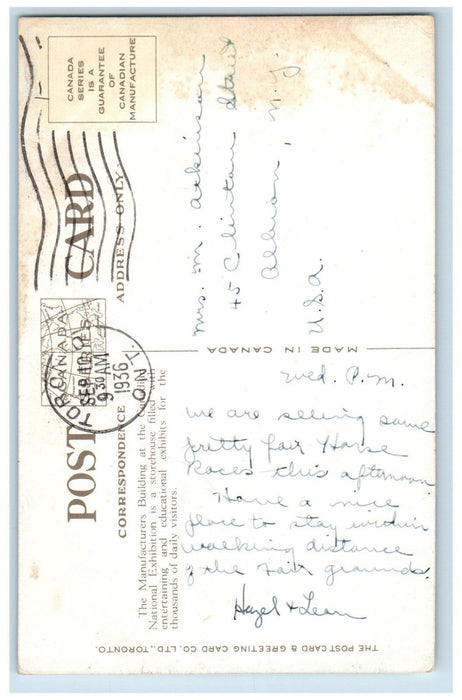 POST CARD
CANADA
SERIES
IS A
GUARANTEE
OF
CANADIAN
MANUFACTURE
CANADA
SERIES
CORRESPONDENCE
ADDRESS ONLY
TORONTO
SEP 10
9 30 AM
1936
ONT.
The Manufacturers Building at the Canadian
National Exhibition is a storehouse filled with
entertaining and educational exhibits for the
thousands of daily visitors.
Wed. P.M.
We are seeing some
pretty fair Horse
Races this afternoon
Have a nice
place to stay within
walking distance
of the Fair grounds.
Hazel + Leon
MADE IN CANADA
Mrs. M. Atkinson
45 Clinton Street
Albion, N.Y.
U.S.A.
THE POST CARD & GREETING CARD CO. LTD., TORONTO.